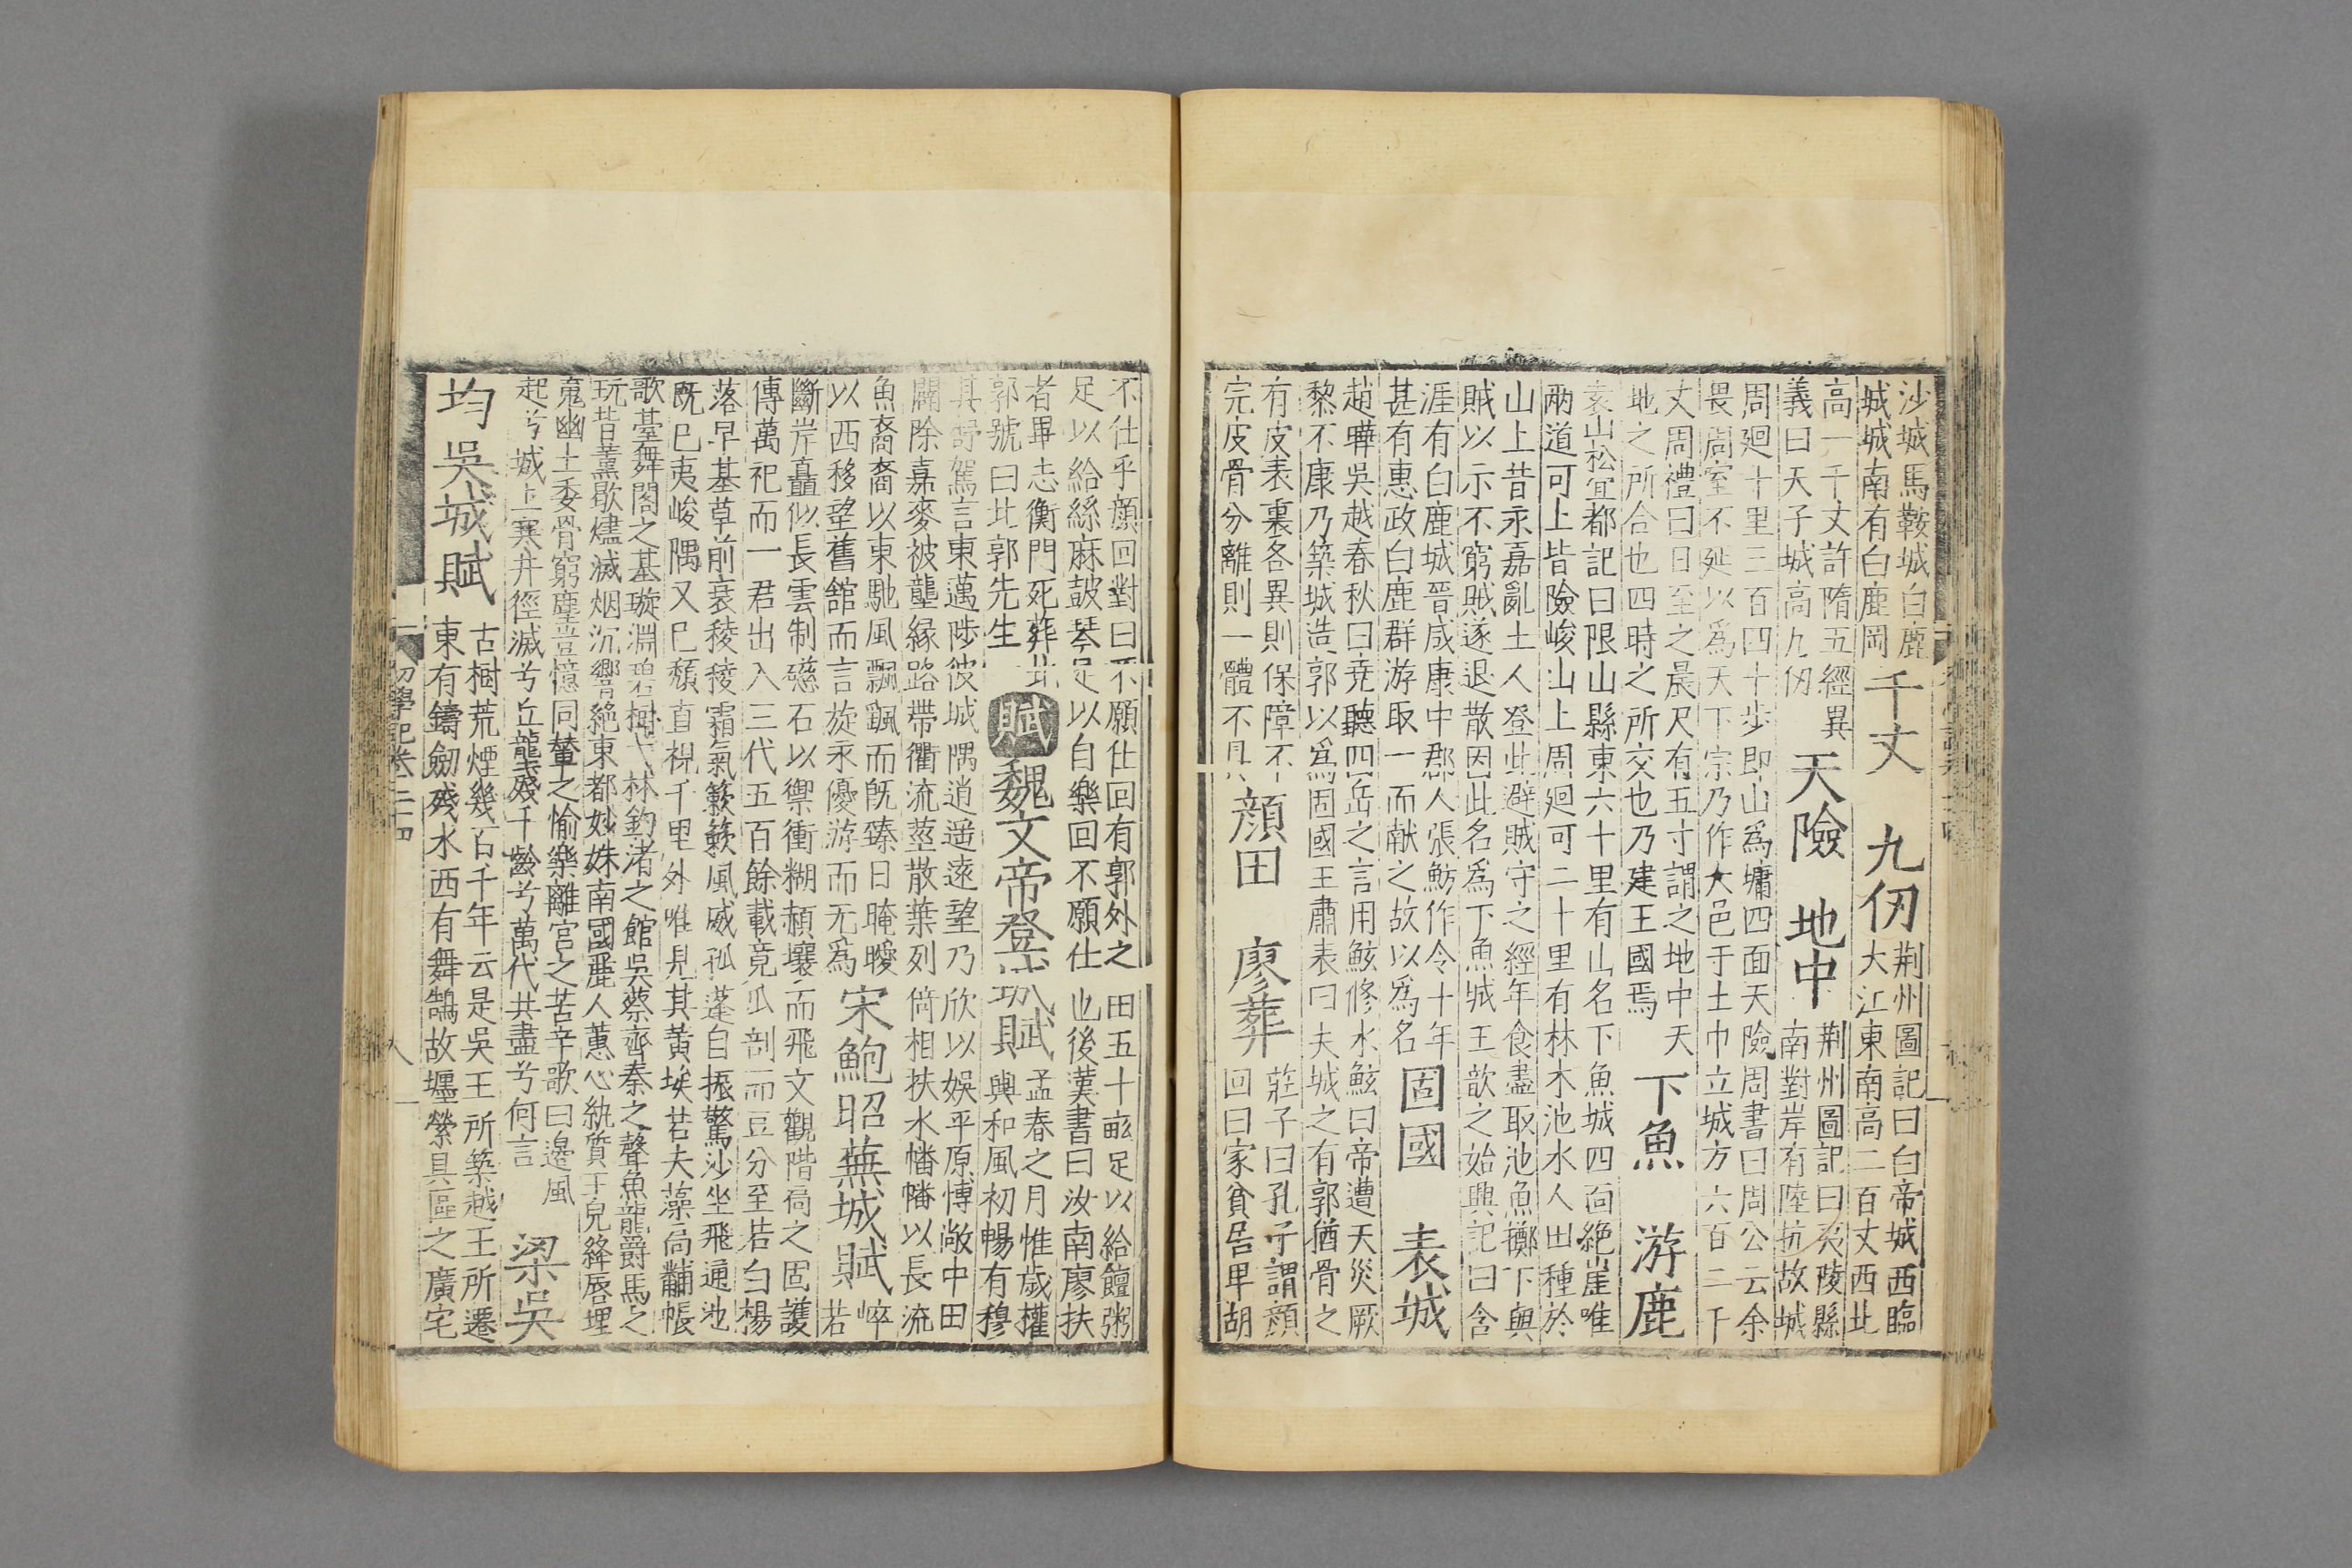 沙城馬鞍城白鹿
城城南有白鹿岡
千丈 九仞
荆州圖記曰白帝城西臨
大江東南高二百丈西北
高一千丈許隋五經異
義曰天子城高九仞
天險 地中
荆州圖記曰夷陵縣
南對岸有陸抗故城
周廻十里三百四十步即山爲墉四面天險周書曰周公云余
畏周室不延以爲天下宗乃作大邑于土中立城方六百二十
丈周禮曰日至之晨尺有五寸謂之地中天
地之所合也四時之所交也乃建王國焉
下魚 游鹿
袁山松宜都記曰限山縣東六十里有山名下魚城四面絶崖唯
兩道可上皆險峻山上周廻可二十里有林木池水人田種於
山上昔永嘉亂土人登此避賊守之經年食盡取池魚擲下與
賊以示不窮賊遂退散因此名爲下魚城王歆之始興記曰含
涯有白鹿城晉咸康中郡人張魴作令十年
甚有惠政白鹿群游取一而献之故以爲名
固國 表城
趙曄吳越春秋曰尭聽四岳之言用鮌修水鮌曰帝遭天災厥
黎不康乃築城造郭以爲固國王肅表曰夫城之有郭猶骨之
有皮表裏各異則保障不
完皮骨分離則一體不具
顔田 廖葬
莊子曰孔子謂顔
回曰家貧居卑胡
不仕乎顔回對曰不願仕回有郭外之田五十畝足以給饘粥
足以給絲麻鼓琴足以自樂回不願仕也後漢書曰汝南廖扶
者畢志衡門死葬北
郭號曰北郭先生
賦
魏文帝登城賦
孟春之月惟歲權
輿和風初暢有穆
其舒駕言東邁陟彼城隅逍遥遠望乃欣以娛平原博敞中田
闢除嘉麥被壟緑路帶衢流莖散葉列倚相扶水幡幡以長流
魚裔裔以東馳風飄颻而旣臻日晻曖
以西移望舊舘而言旋永優游而无爲
宋鮑昭蕪城賦
崪若
斷岸矗似長雲制磁石以禦衝糊赬壤而飛文觀階扃之固護
傳萬祀而一君出入三代五百餘載竟瓜剖而豆分至若白楊
落早基草前衰稜稜霜氣簌簌風威孤蓬自振驚沙坐飛通池
旣已夷峻隅又已頽直視千里外唯見其黃埃若夫藻扃黼帳
歌臺舞閣之基璇淵碧樹弋林釣渚之館吳蔡齊秦之聲魚龍爵馬之
玩昔薰歇燼滅烟沉響絕東都妙姝南國麗人蕙心紈質玉皃絳唇埋
䰟幽土委骨窮塵豈憶同輦之愉樂離宮之苦辛歌曰邊風
起兮城上寒井徑滅兮丘壠殘千齡兮萬代共盡兮何言
梁吳
均吳城賦
古樹荒煙幾百千年云是吳王所築越王所遷
東有鑄劒殘水西有舞鶴故壥縈具區之廣宅
初學記卷二十四